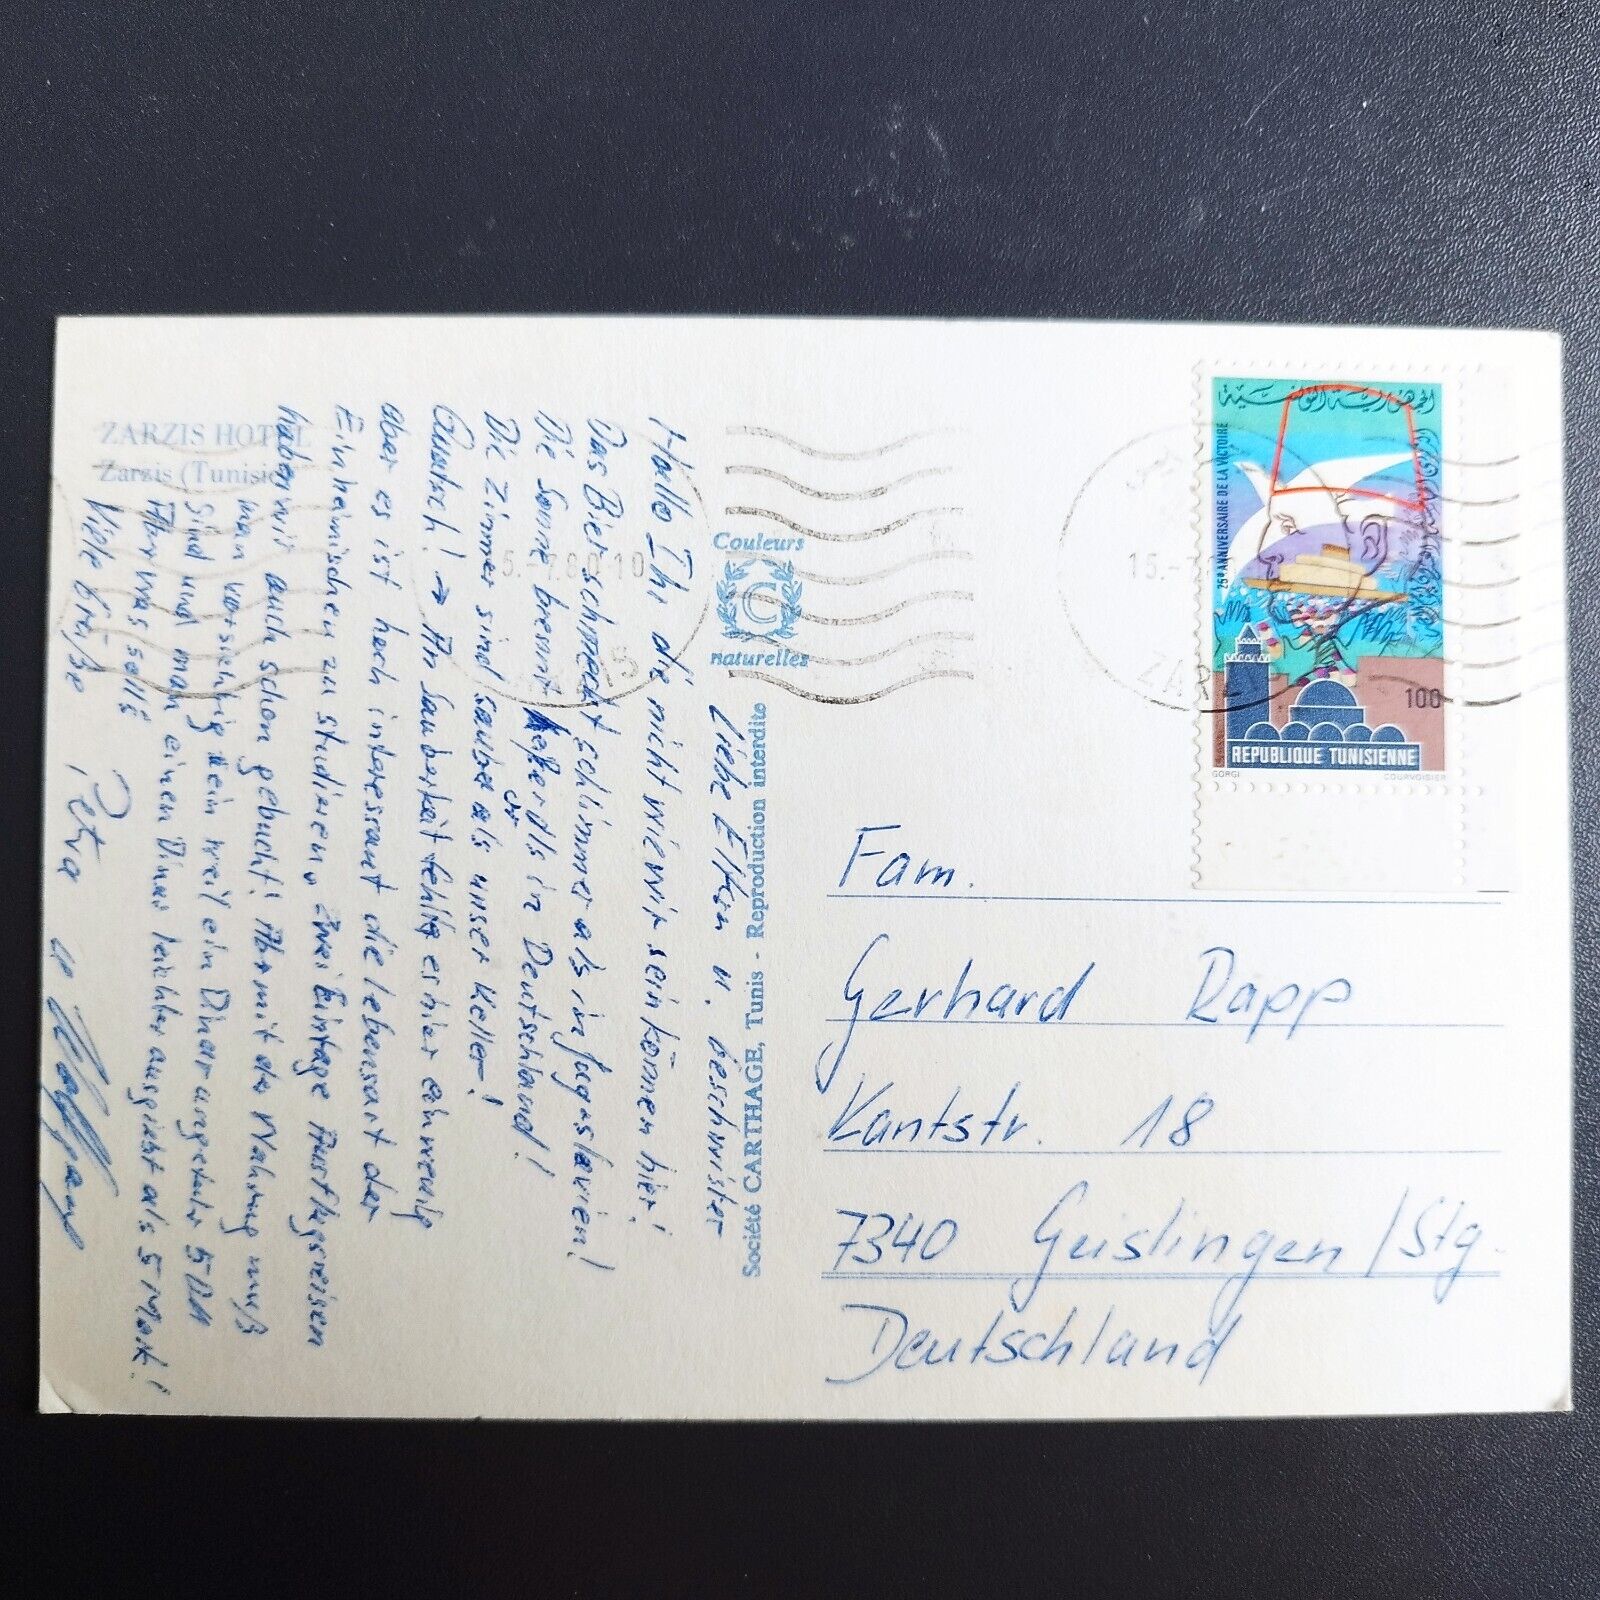 ZARZIS HOTEL
Zarzis (Tunisie)
Liebe Eltern u. Geschwister
Hallo Ihr die nicht wie wir sein können hier!
Das Bier schmeckt schlimmer als in Jugoslavien!
Die Sonne brennt heißer als in Deutschland!
Die Zimmer sind sauber als unser Keller!
Quatsch! → An Sauberkeit fehlt es hier ein wenig
aber es ist hoch interessant die lebensart der
Einheimischen zu studieren. Zwei Eintage Ausflugsreisen
haben wir auch schon gebucht! Aber mit der Währung muß
man vorsichtig sein weil ein Dinar ungefähr 5 DM
sind und man einen Dinar leichter ausgiebt als 5 Mark!
Aber was solls
Viele Grüße
Petra u Wolfgang
Couleurs
C
naturelles
Société CARTHAGE, Tunis - Reproduction interdite
5.-7.80.10
15.-
ZAR
الجمهورية التونسية
25e ANNIVERSAIRE DE LA VICTOIRE
100
REPUBLIQUE TUNISIENNE
GORGI
COURVOISIER
Fam.
Gerhard Rapp
Kantstr. 18
7340 Geislingen/Stg.
Deutschland